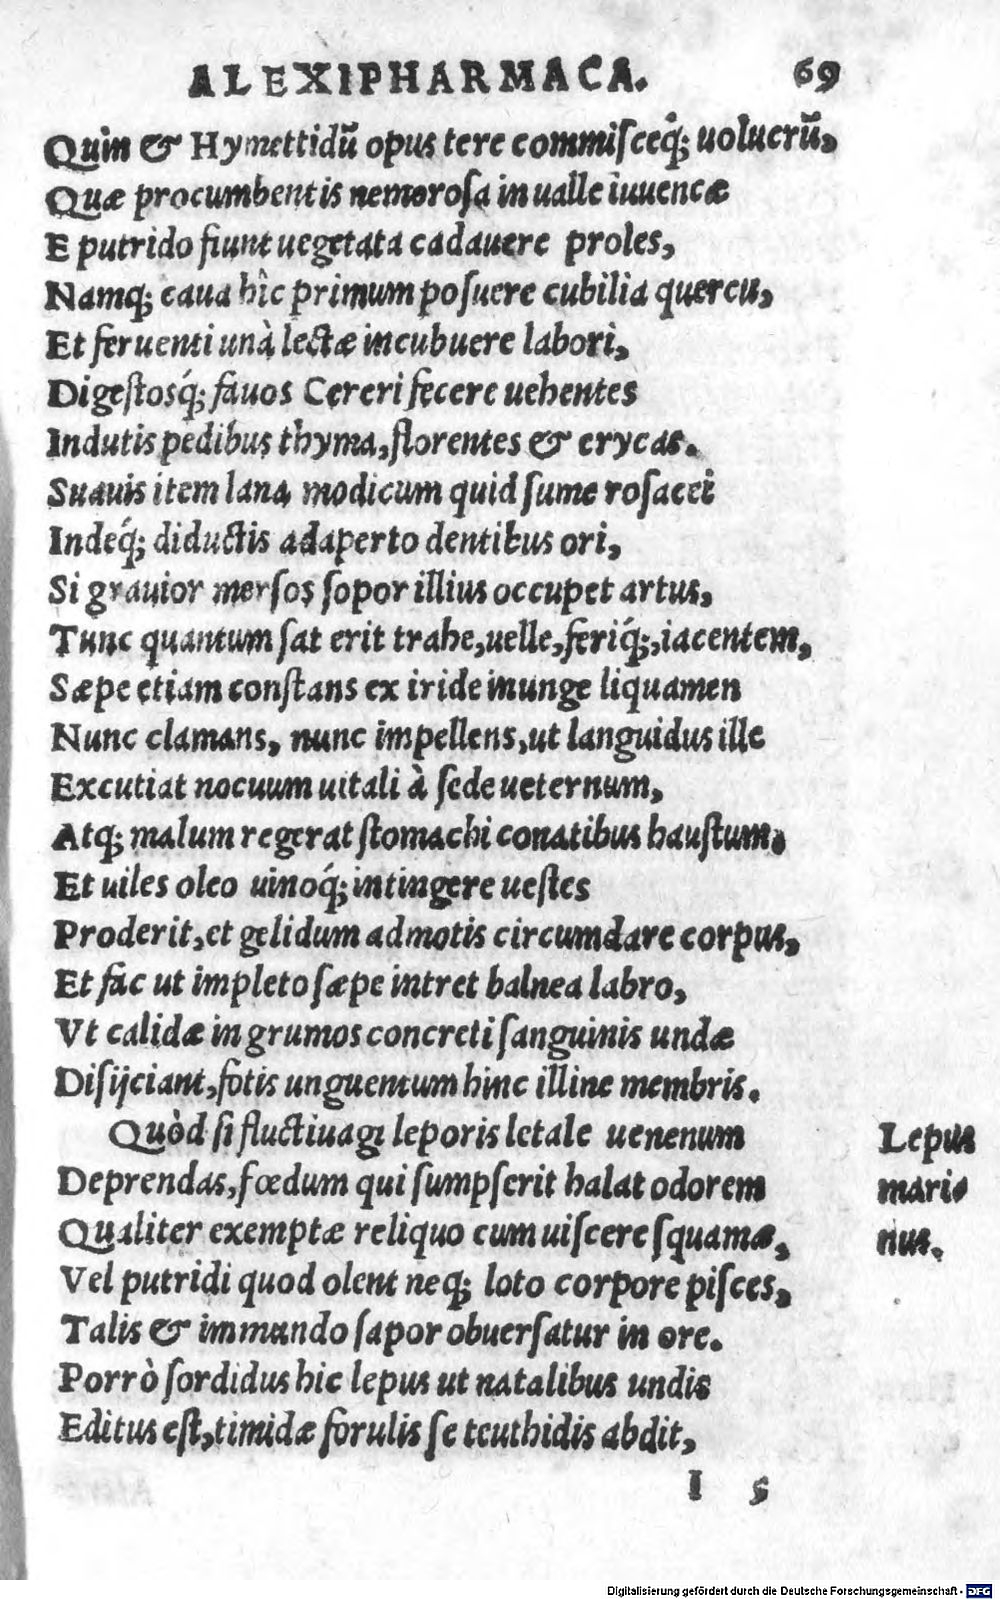 ALEXIPHARMACA. 69
Quin & Hymettidũ opus tere commisceq́; uolucrũ,
Quæ procumbentis nemorosa in ualle iuuencæ
E putrido fiunt uegetata cadauere proles,
Namq; caua hîc primum posuere cubilia quercu,
Et feruenti unà lectæ incubuere labori,
Digestosq́; fauos Cereri fecere uehentes
Indutis pedibus thyma, florentes & erycas.
Suauis item lana modicum quid sume rosacei
Indeq́; diductis adaperto dentibus ori,
Si grauior mersos sopor illius occupet artus,
Tunc quantum sat erit trahe, uelle, feriq́;, iacentem,
Sæpe etiam constans ex iride inunge liquamen
Nunc clamans, nunc impellens, ut languidus ille
Excutiat nocuum uitali à sede ueternum,
Atq; malum regerat stomachi conatibus haustum.
Et uiles oleo uinoq́; intingere uestes
Proderit, et gelidum admotis circumdare corpus,
Et fac ut impleto sæpe intret balnea labro,
Vt calidæ in grumos concreti sanguinis undæ
Disijciant, fotis unguentum hinc illinc membris.
Quòd si fluctiuagi leporis letale uenenum
Deprendas, fœdum qui sumpserit halat odorem
Qualiter exemptæ reliquo cum uiscere squamæ,
Vel putridi quod olent neq; loto corpore pisces,
Talis & immundo sapor obuersatur in ore.
Porrò sordidus hic lepus ut natalibus undis
Editus est, timidæ forulis se teuthidis abdit,
Lepus
mari⸗
nus.
I 5
Digitalisierung gefördert durch die Deutsche Forschungsgemeinschaft - DFG